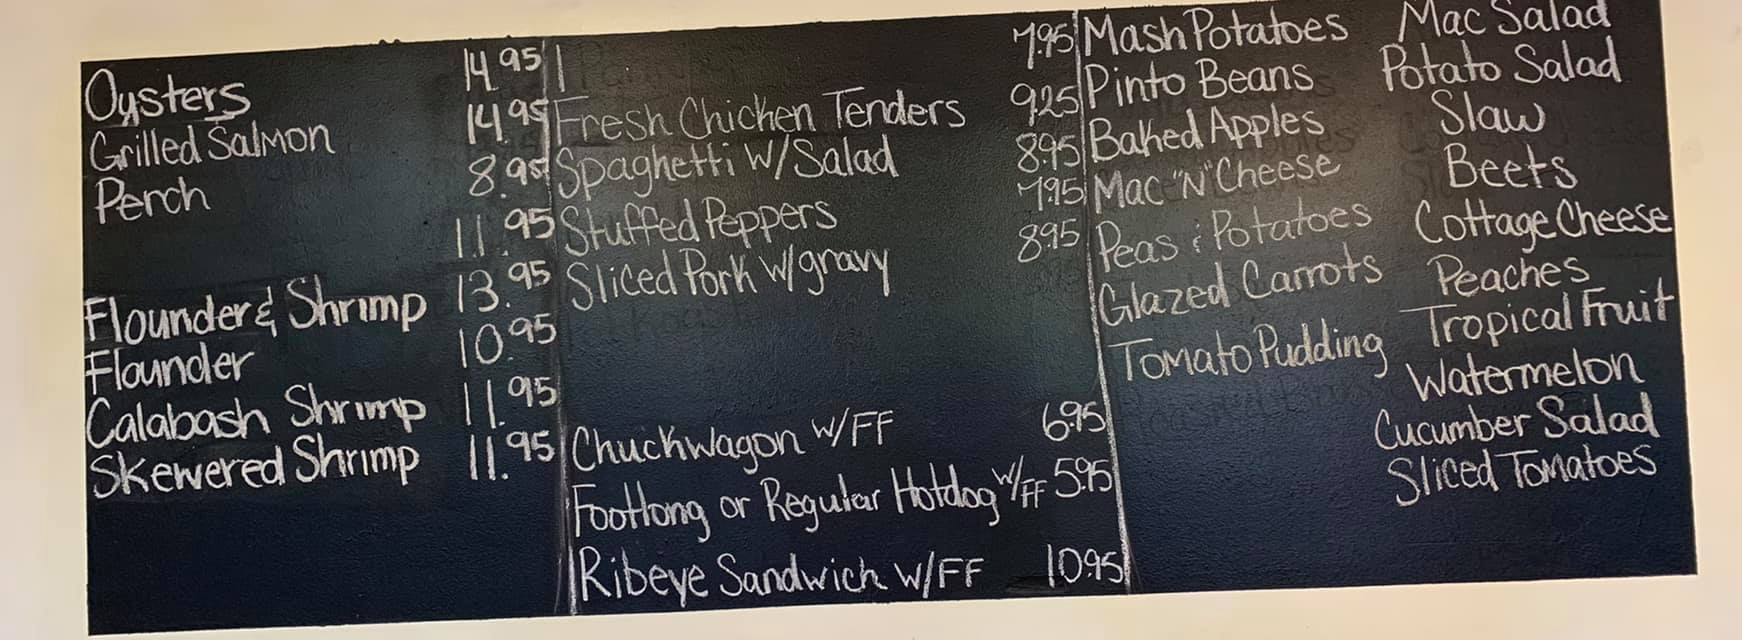 Oysters 14.95
Grilled Salmon 14.95
Perch 8.95
11.95
Flounder & Shrimp 13.95
Flounder 10.95
Calabash Shrimp 11.95
Skewered Shrimp 11.95
7.95
Fresh Chicken Tenders 925
Spaghetti W/Salad 895
Stuffed Peppers 795
Sliced Pork w/gravy 895
Chuckwagon w/FF 695
Footlong or Regular Hotdog w/FF 595
Ribeye Sandwich w/FF 1095
Mash Potatoes
Pinto Beans
Baked Apples
Mac "N" Cheese
Peas & Potatoes
Glazed Carrots
Tomato Pudding
Mac Salad
Potato Salad
Slaw
Beets
Cottage Cheese
Peaches
Tropical Fruit
Watermelon
Cucumber Salad
Sliced Tomatoes